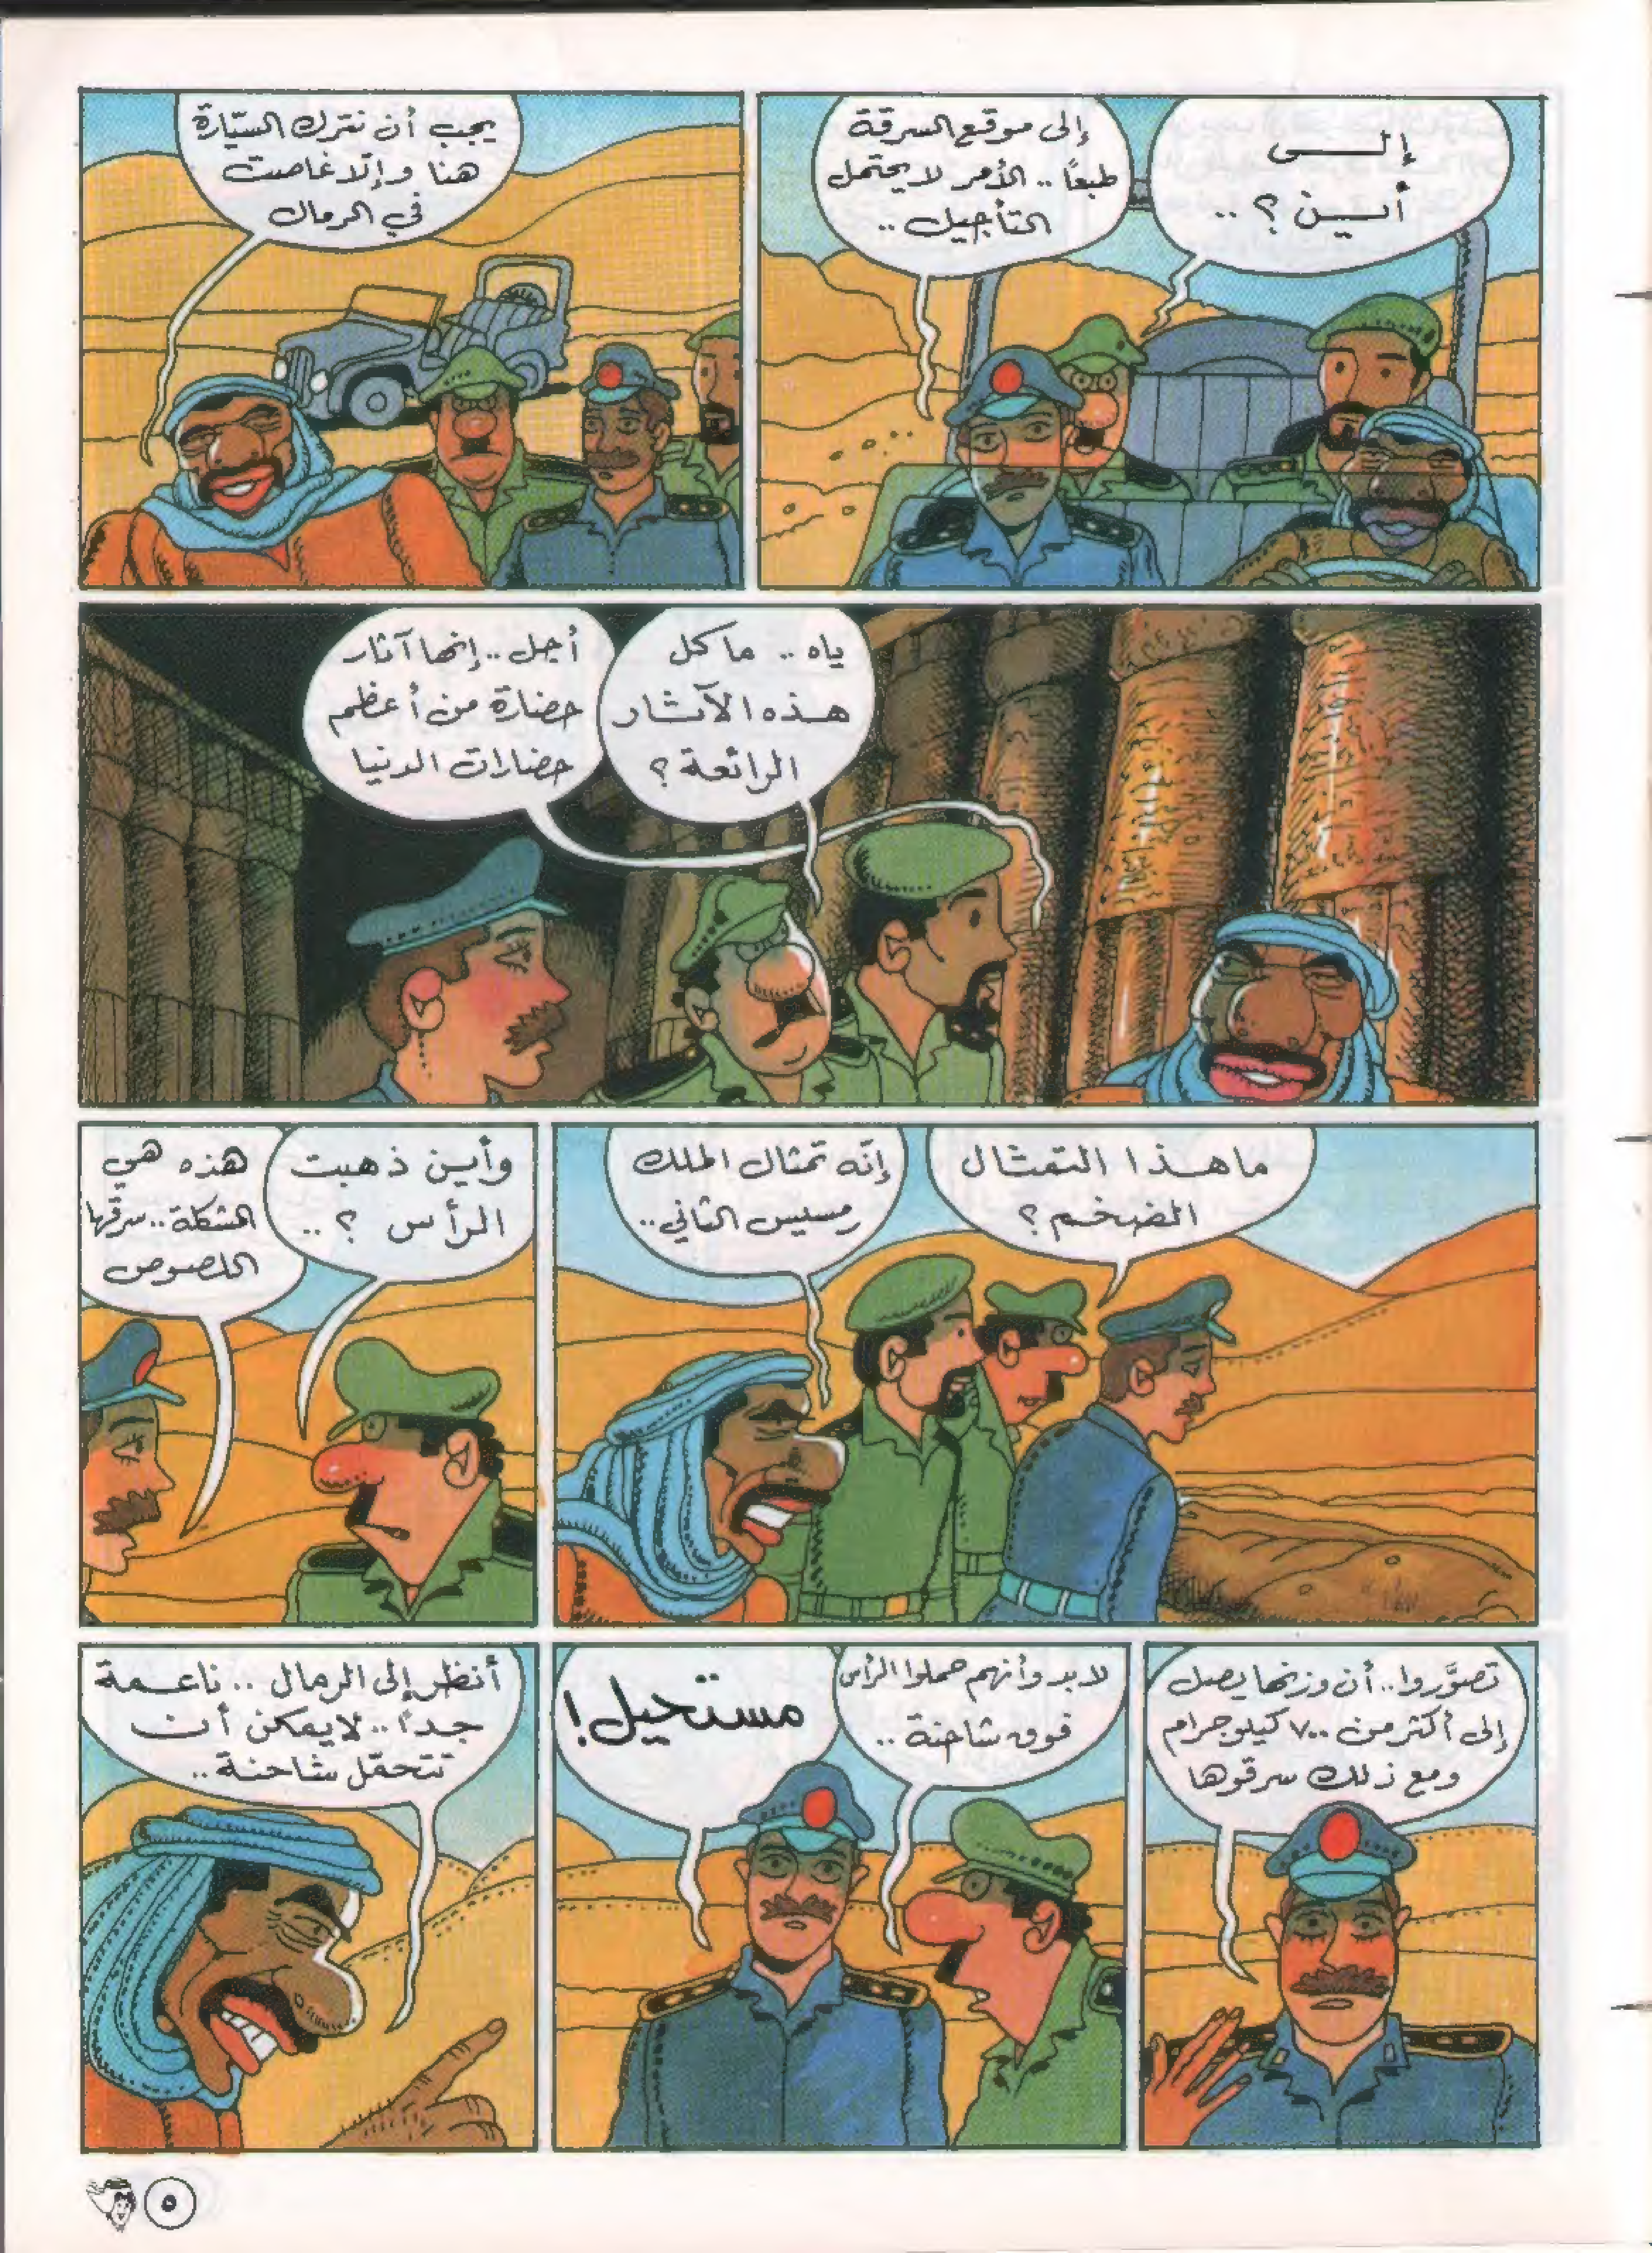 إلى
أين؟..
إلى موقع السرقة
طبعًا.. الأمر لا يحتمل
التأجيل..
يجب أن نترك السيّارة
هنا وإلّا غاصت
في الرمال
ياه.. ما كل
هذه الآثار
الرائعة؟
أجل.. إنها آثار
حضارة من أعظم
حضارات الدنيا
ما هذا التمثال
الضخم؟
إنّه تمثال الملك
رمسيس الثاني..
وأين ذهبت
الرأس؟..
هذه هي
المشكلة.. سرقها
اللصوص
تصوَّروا.. أن وزنها يصل
إلى أكثر من ٧٠٠ كيلوجرام
ومع ذلك سرقوها
لا بد وأنهم حملوا الرأس
فوق شاحنة..
مستحيل!
أنظر إلى الرمال.. ناعمة
جدًا.. لا يمكن أن
تتحمّل شاحنة..
٥